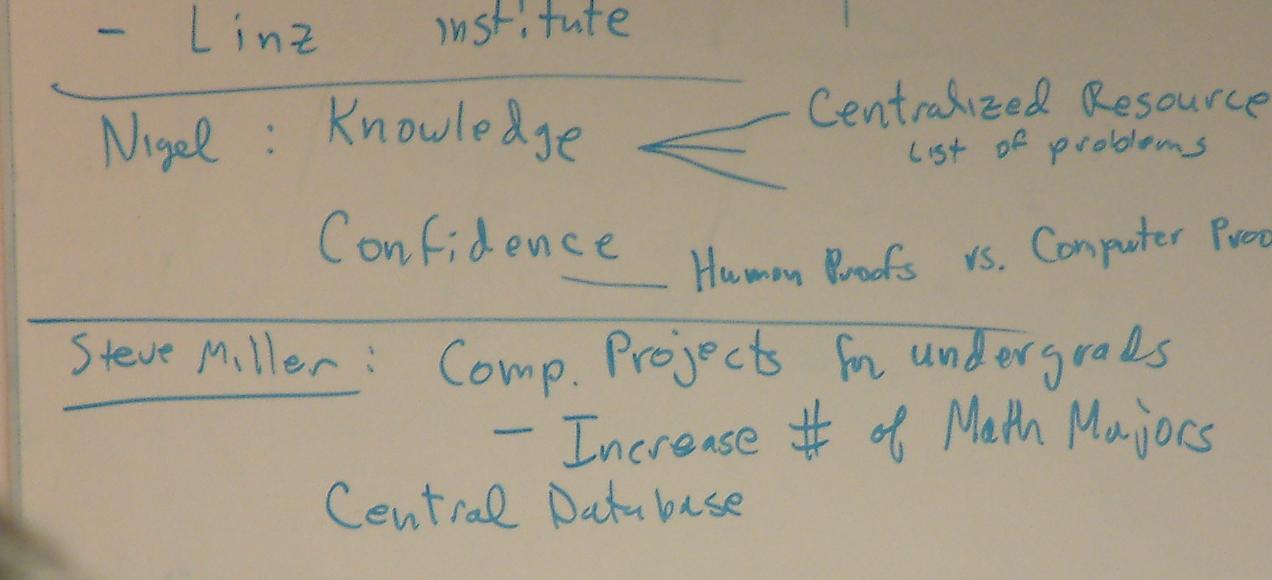 - Linz institute
Nigel : Knowledge Centralized Resource
List of problems
Confidence Human Proofs vs. Computer Proo
Steve Miller : Comp. Projects for undergrads
- Increase # of Math Majors
Central Database